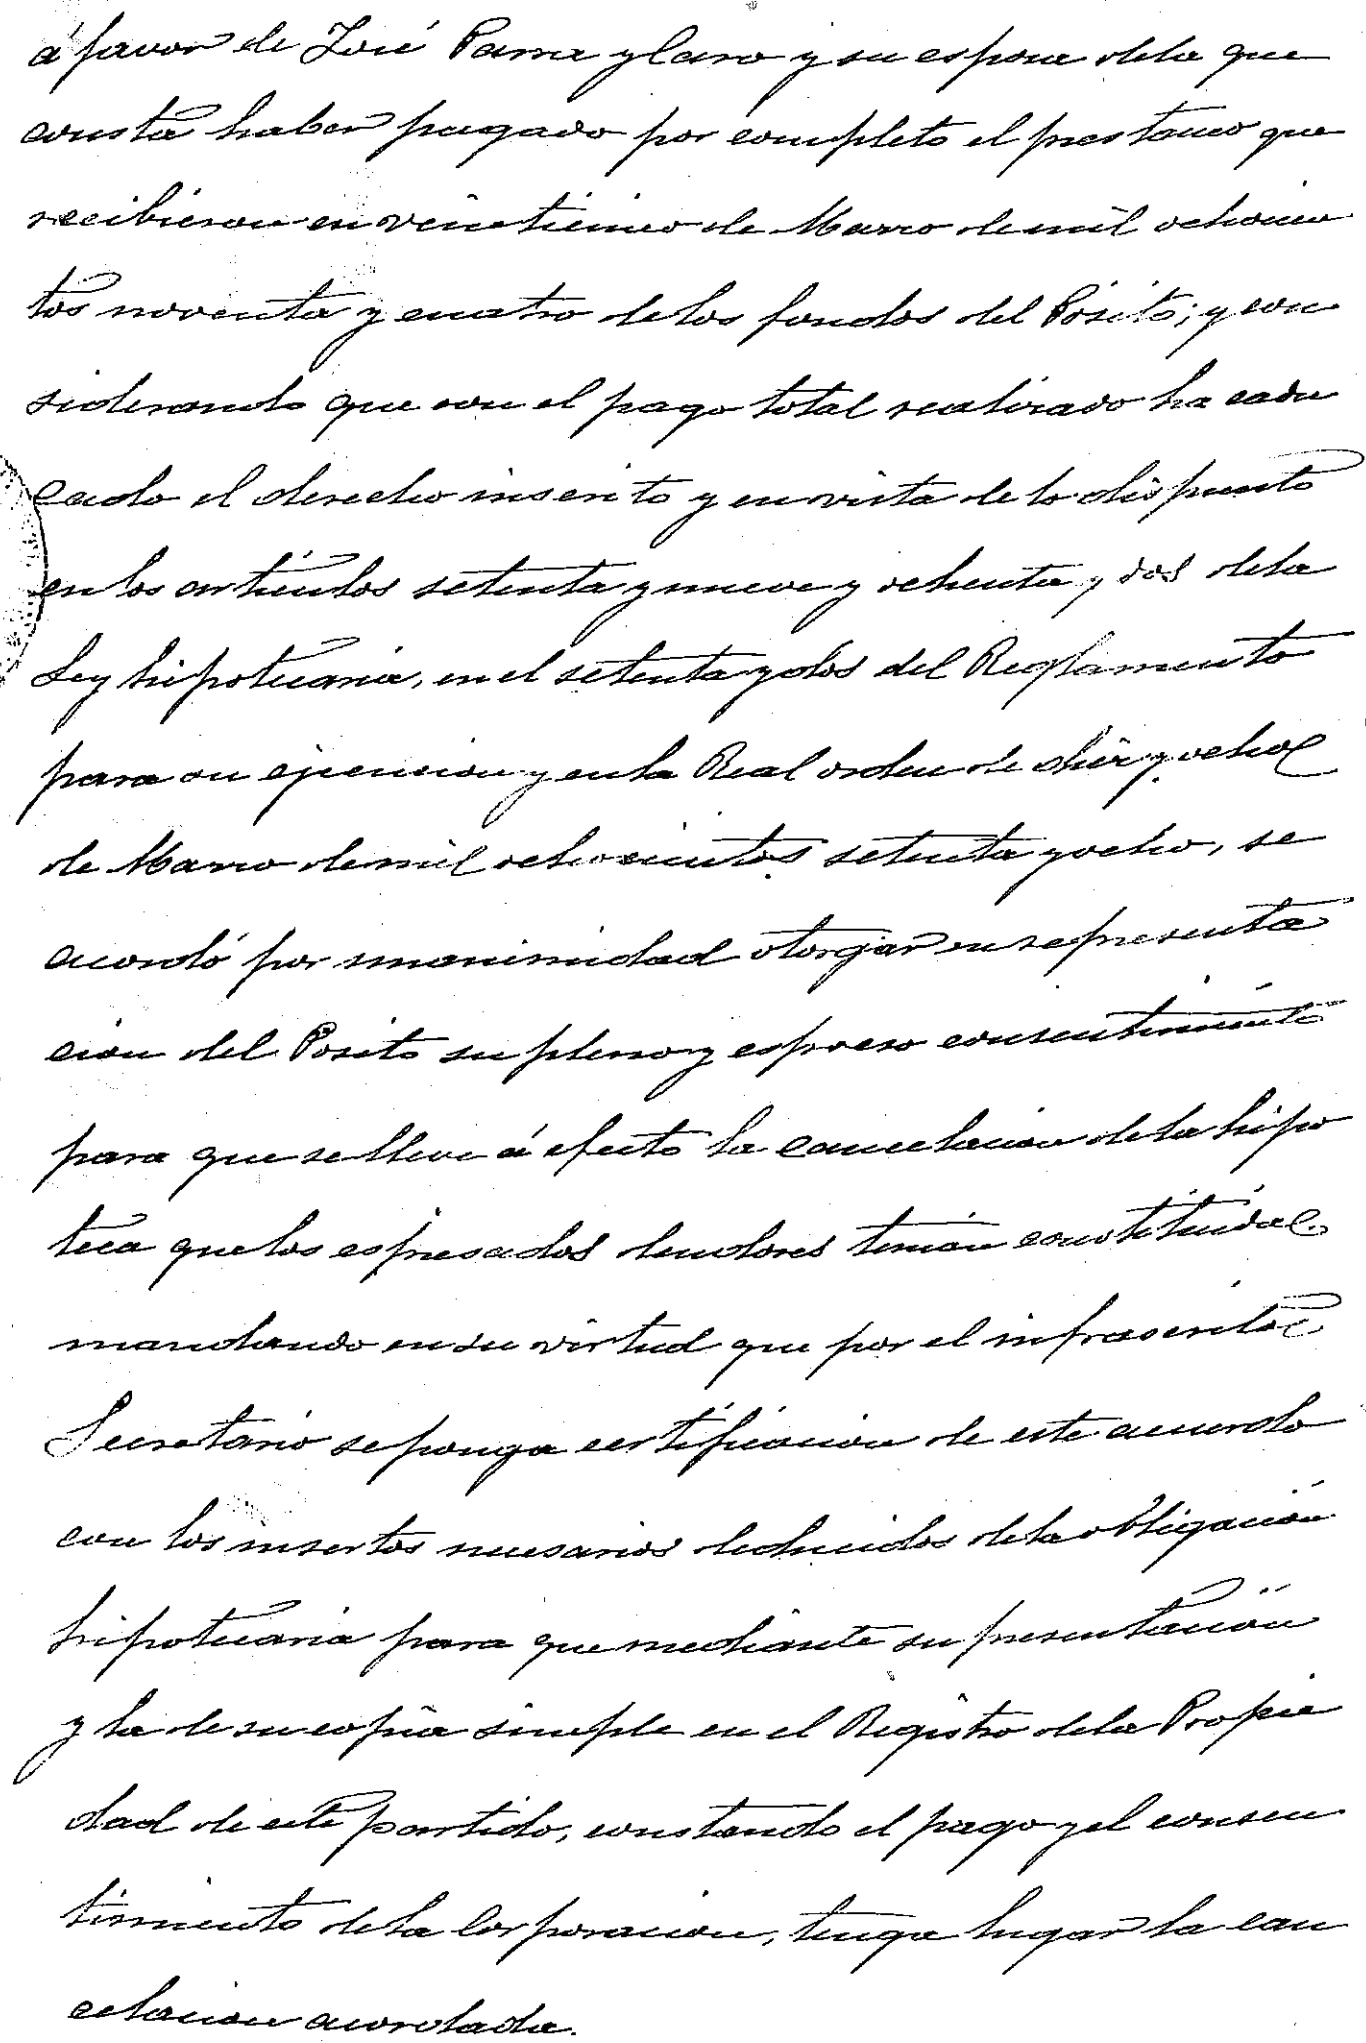 á favor de José Parra y Caro y su esposa de la que
consta haber pagado por completo el prestamo que
recibieron en veinticinco de Marzo de mil ochocien
tos noventa y cuatro de los fondos del Pósito; y con
siderando que con el pago total realizado ha cadu
cado el derecho inscrito y en vista de lo dispuesto
en los artículos setenta y nueve y ochenta y dos de la
Ley hipotecaria, en el setenta y dos del Reglamento
para su ejecucion y en la Real orden de diez y ocho
de Marzo de mil ochocientos setenta y ocho, se
acordó por unanimidad otorgar en representa
cion del Posito su pleno y espreso consentimiento
para que se lleve á efecto la cancelacion de la hipo
teca que los espresados deudores tenian constituida
mandando en su virtud que por el infrascrito
Secretario se ponga certificacion de este acuerdo
con los insertos necesarios deducidos de la obligación
hipotecaria para que mediante su presentación
y la de su copia simple en el Registro de la Propie
dad de este partido, constando el pago y el consen
timiento de la Corporacion, tenga lugar la can
celacion acordada.